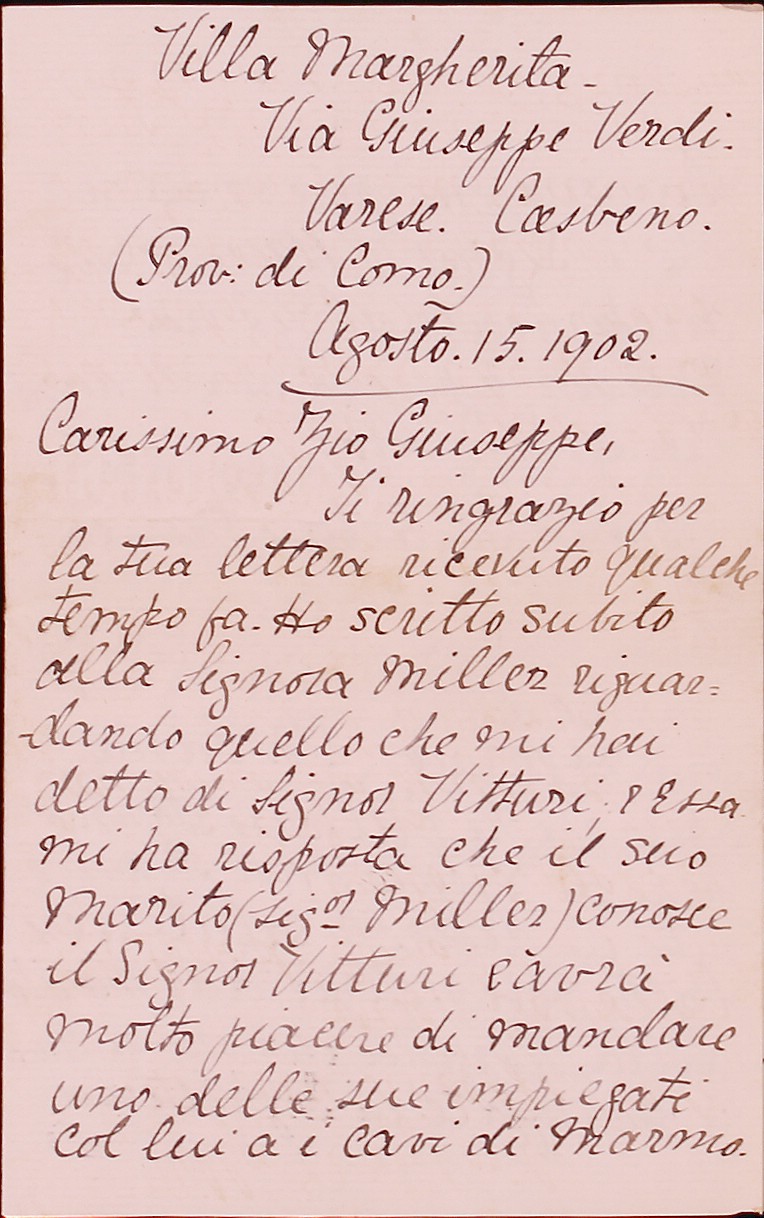 Villa Margherita -
Via Giuseppe Verdi.
Varese. Casbeno.
(Prov: di Como.)
Agosto. 15. 1902.
Carissimo Zio Giuseppe,
Ti ringrazio per
la tua lettera ricevuto qualche
tempo fa. Ho scritto subito
alla Signora Miller riguar=
-dando quello che mi hai
detto di Signor Vitturi, e Essa
mi ha risposta che il suo
Marito (Sigor Miller) conosce
il Signor Vitturi e avrà
molto piacere di mandare
uno delle sue impiegati
col lui a i cavi di Marmo.